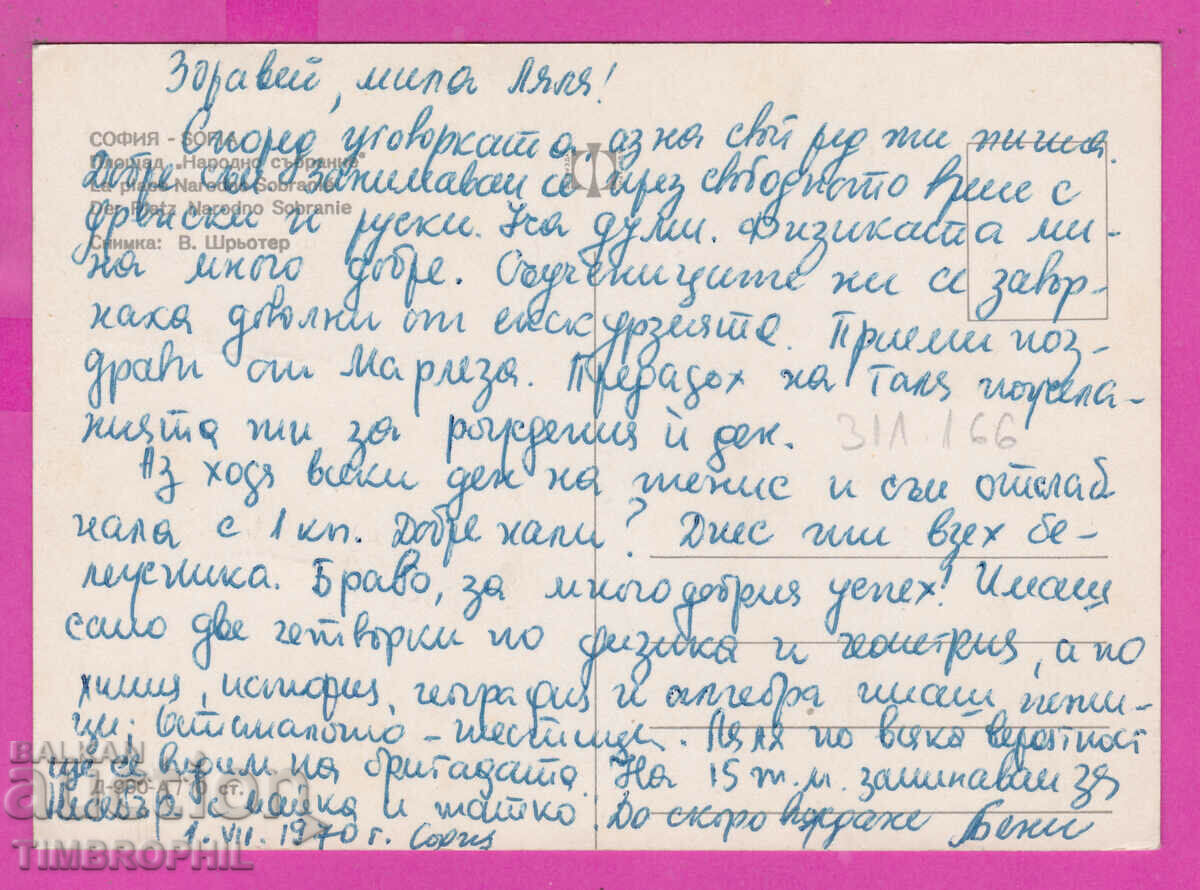 Здравей, мила Ляля!
Според уговорката аз на свой ред ти пиша.
СОФИЯ - SOFIA
Площад „Народно събрание"
La place Narodno Sobranie
Der Platz Narodno Sobranie
Снимка: В. Шрьотер
Добре съм занимавам се през свободното време с
френски и руски. Уча думи. Физиката ми-
на много добре. Съученищите ни се завър-
наха доволни от екскурзията. Приеми поз-
драви от Марлеза. Предадох на Галя пожела-
нията ти за рождения ѝ ден.
311.166
Аз ходя всеки ден на тенис и съм отслаб
нала с 1 кг. Добре нали? Днес ти взех бе-
лежника. Браво, за многодобрия успех! Имаш
само две четворки по физика и геометрия, а по
химия, история, география и алгебра имаш пети-
ци, останалото – шестици. Ляля по всяка вероятност
ще се видим на бригадата. На 15 т.м. заминавам за
с майка и татко. До скоро виждане Бени
Д-990-А 7 ст.
1. VII. 1970 г. София
BALKAN
auction
TIMBROPHIL